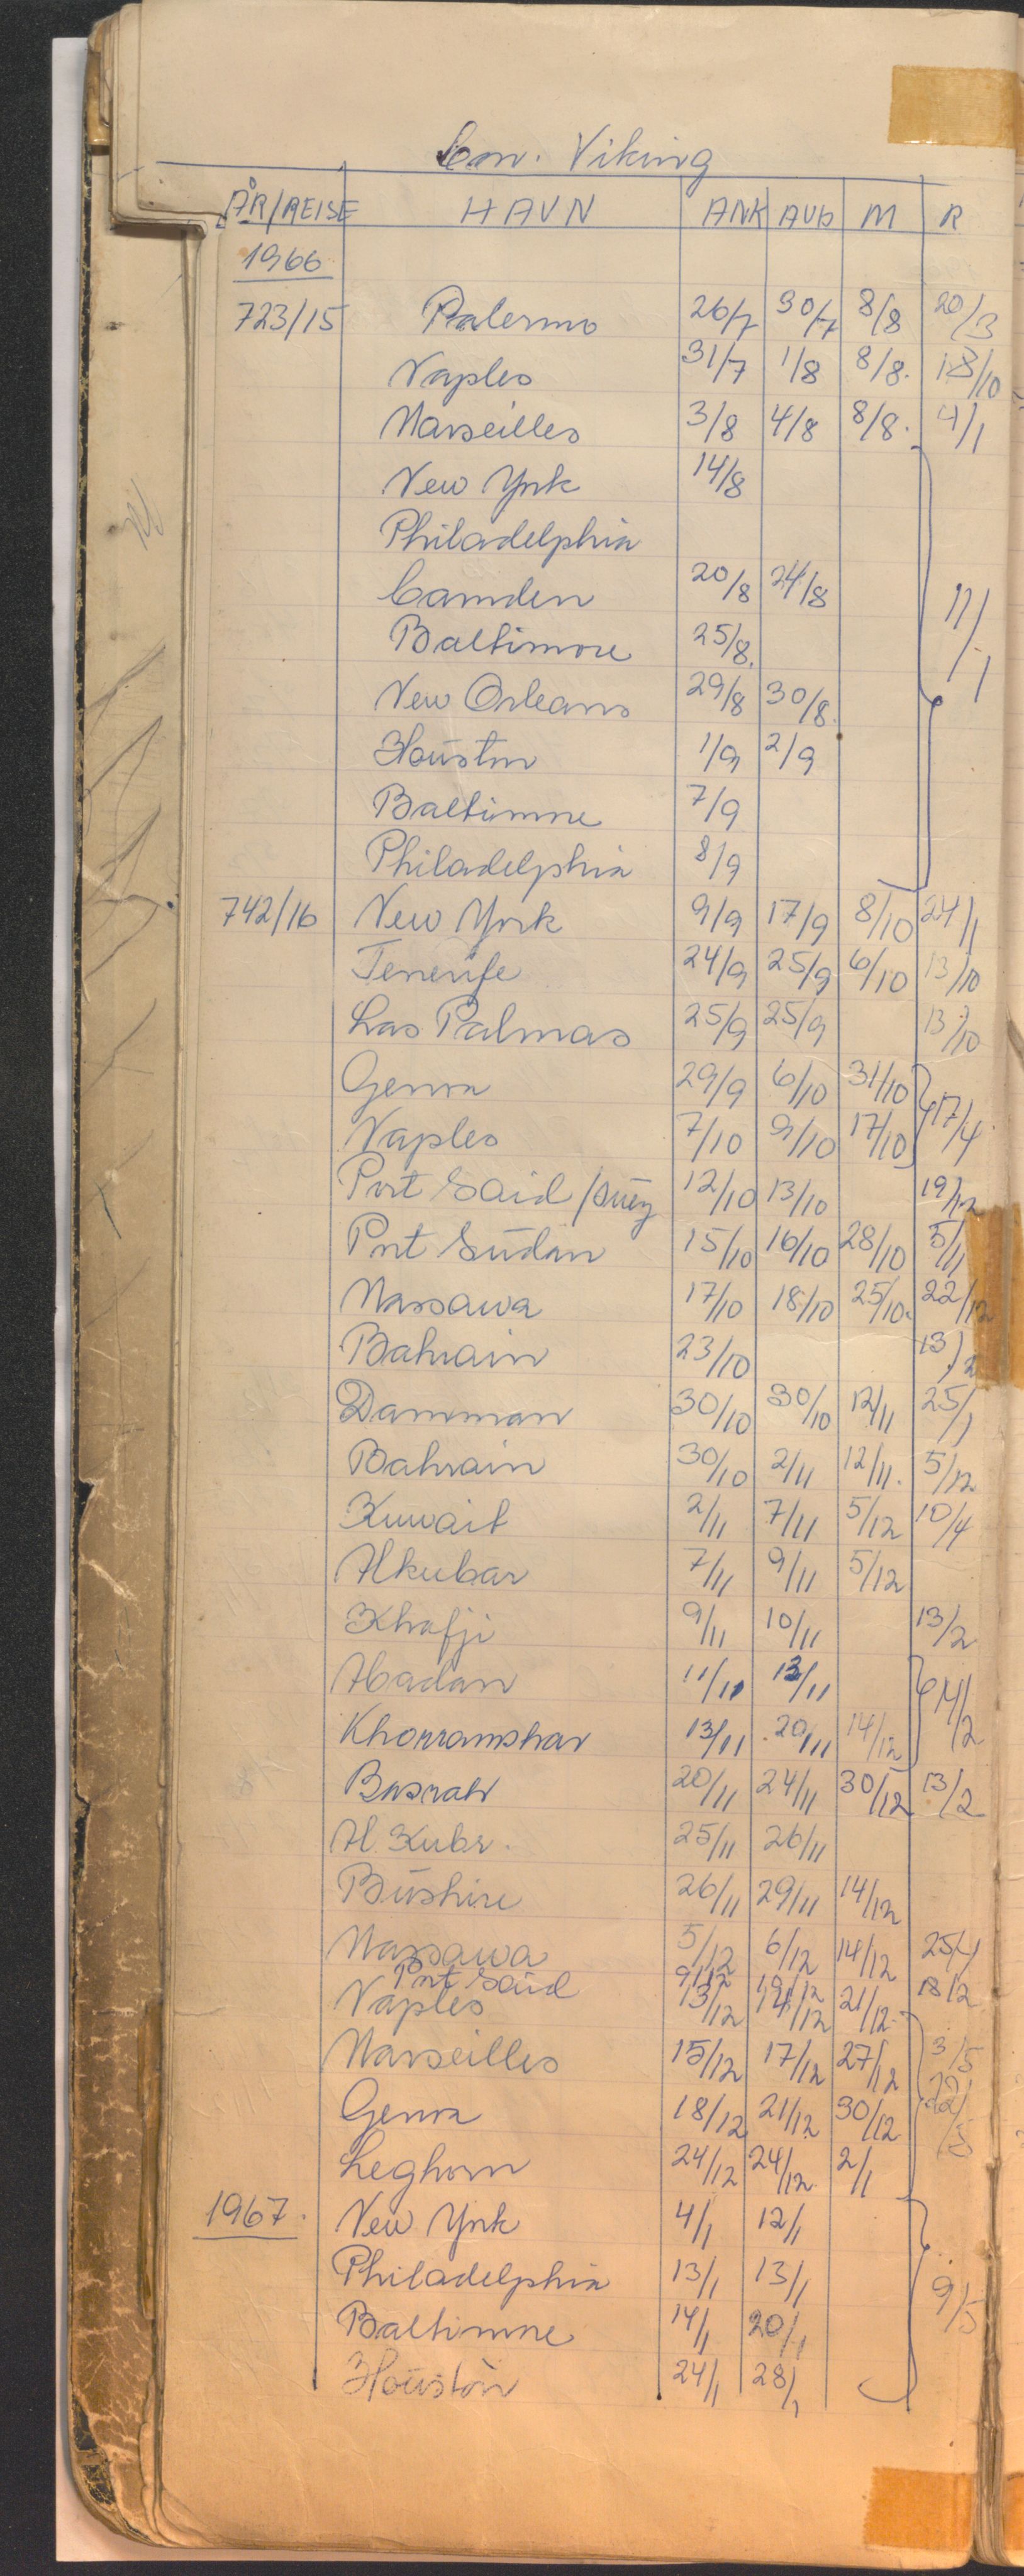 Con. Viking
ÅR/REISE HAVN ANK AVG M R
1966
723/15 Palermo 26/7 30/7 8/8 20/3
Naples 31/7 1/8 8/8. 18/10
Marseilles 3/8 4/8 8/8. 4/1
New York 14/8
Philadelphia
Camden 20/8 24/8 11/1
Baltimore 25/8.
New Orleans 29/8 30/8.
Houston 1/9 2/9
Baltimore 7/9
Philadelphia 8/9
742/16 New York 9/9 17/9 8/10 24/1
Tenerife 24/9 25/9 6/10 13/10
Las Palmas 25/9 25/9 13/10
Genoa 29/9 6/10 31/10 17/4
Naples 7/10 9/10 17/10
Port Said/Suez 12/10 13/10 19/12
Port Sudan 15/10 16/10 28/10 5/11
Massawa 17/10 18/10 25/10. 22/12
Bahrain 23/10 13/2
Damman 30/10 30/10 12/11 25/1
Bahrain 30/10 2/11 12/11. 5/12
Kuwait 2/11 7/11 5/12 10/4
Alkubar 7/11 9/11 5/12
Khafji 9/11 10/11 13/2
Abadan 11/11 13/11 14/2
Khorramshar 13/11 20/11 14/12
Basrah 20/11 24/11 30/12 13/2
Al Kubr. 25/11 26/11
Bushire 26/11 29/11 14/12
Massawa 5/12 6/12 14/12 25/1
Port Said 9/12 19/12 13/2
Naples 13/12 14/12 21/12
Marseilles 15/12 17/12 27/12 3/5
Genoa 18/12 21/12 30/12 22/5
Leghorn 24/12 24/12 2/1
1967. New York 4/1 12/1
Philadelphia 13/1 13/1 9/5
Baltimore 14/1 20/1
Houston 24/1 28/1